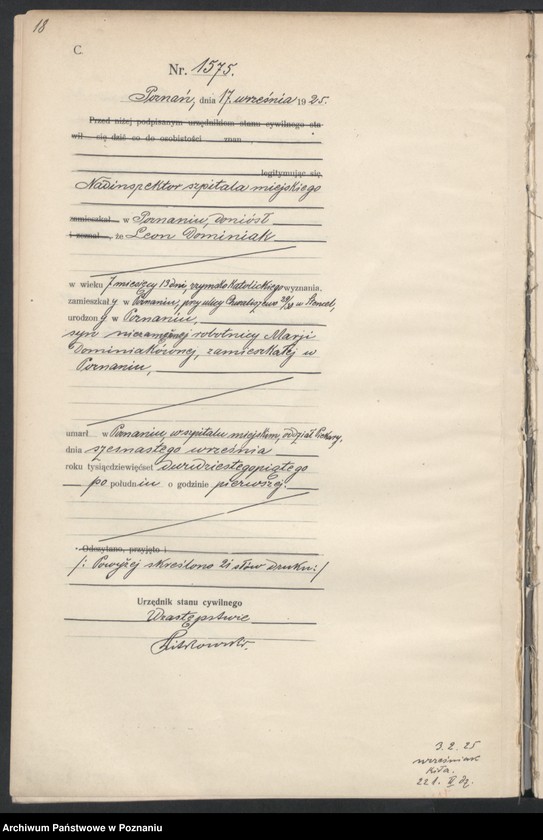 18
C.
Nr. 1575.
Poznań, dnia 17. września 1925.
Przed niżej podpisanym urzędnikiem stanu cywilnego sta
wił się dziś co do osobistości znan
legitymując się
Nadinspektor szpitala miejskiego
zamieszkał w Poznaniu, doniósł
i zeznał, że Leon Dominiak
w wieku 7 miesięcy 13 dni, rzymsko katolickiego wyznania.
zamieszkały w Poznaniu, przy ulicy Chwaliszewo w
urodzony w Poznaniu,
syn niezamężnej robotnicy Marji
Dominiakównej, zamieszkałej w
Poznaniu,
umarł w Poznaniu, w szpitalu miejskim, oddział
dnia szesnastego września
roku tysiącdziewięćset dwudziestegopiątego
po południu o godzinie pierwszej.
Odczytano, przyjęto i
/: Powyżej skreślono 21 słów druku :/
Urzędnik stanu cywilnego
W zastępstwie
3. 2. 25
wrześniak
Kiła.
Archiwum Państwowe w Poznaniu